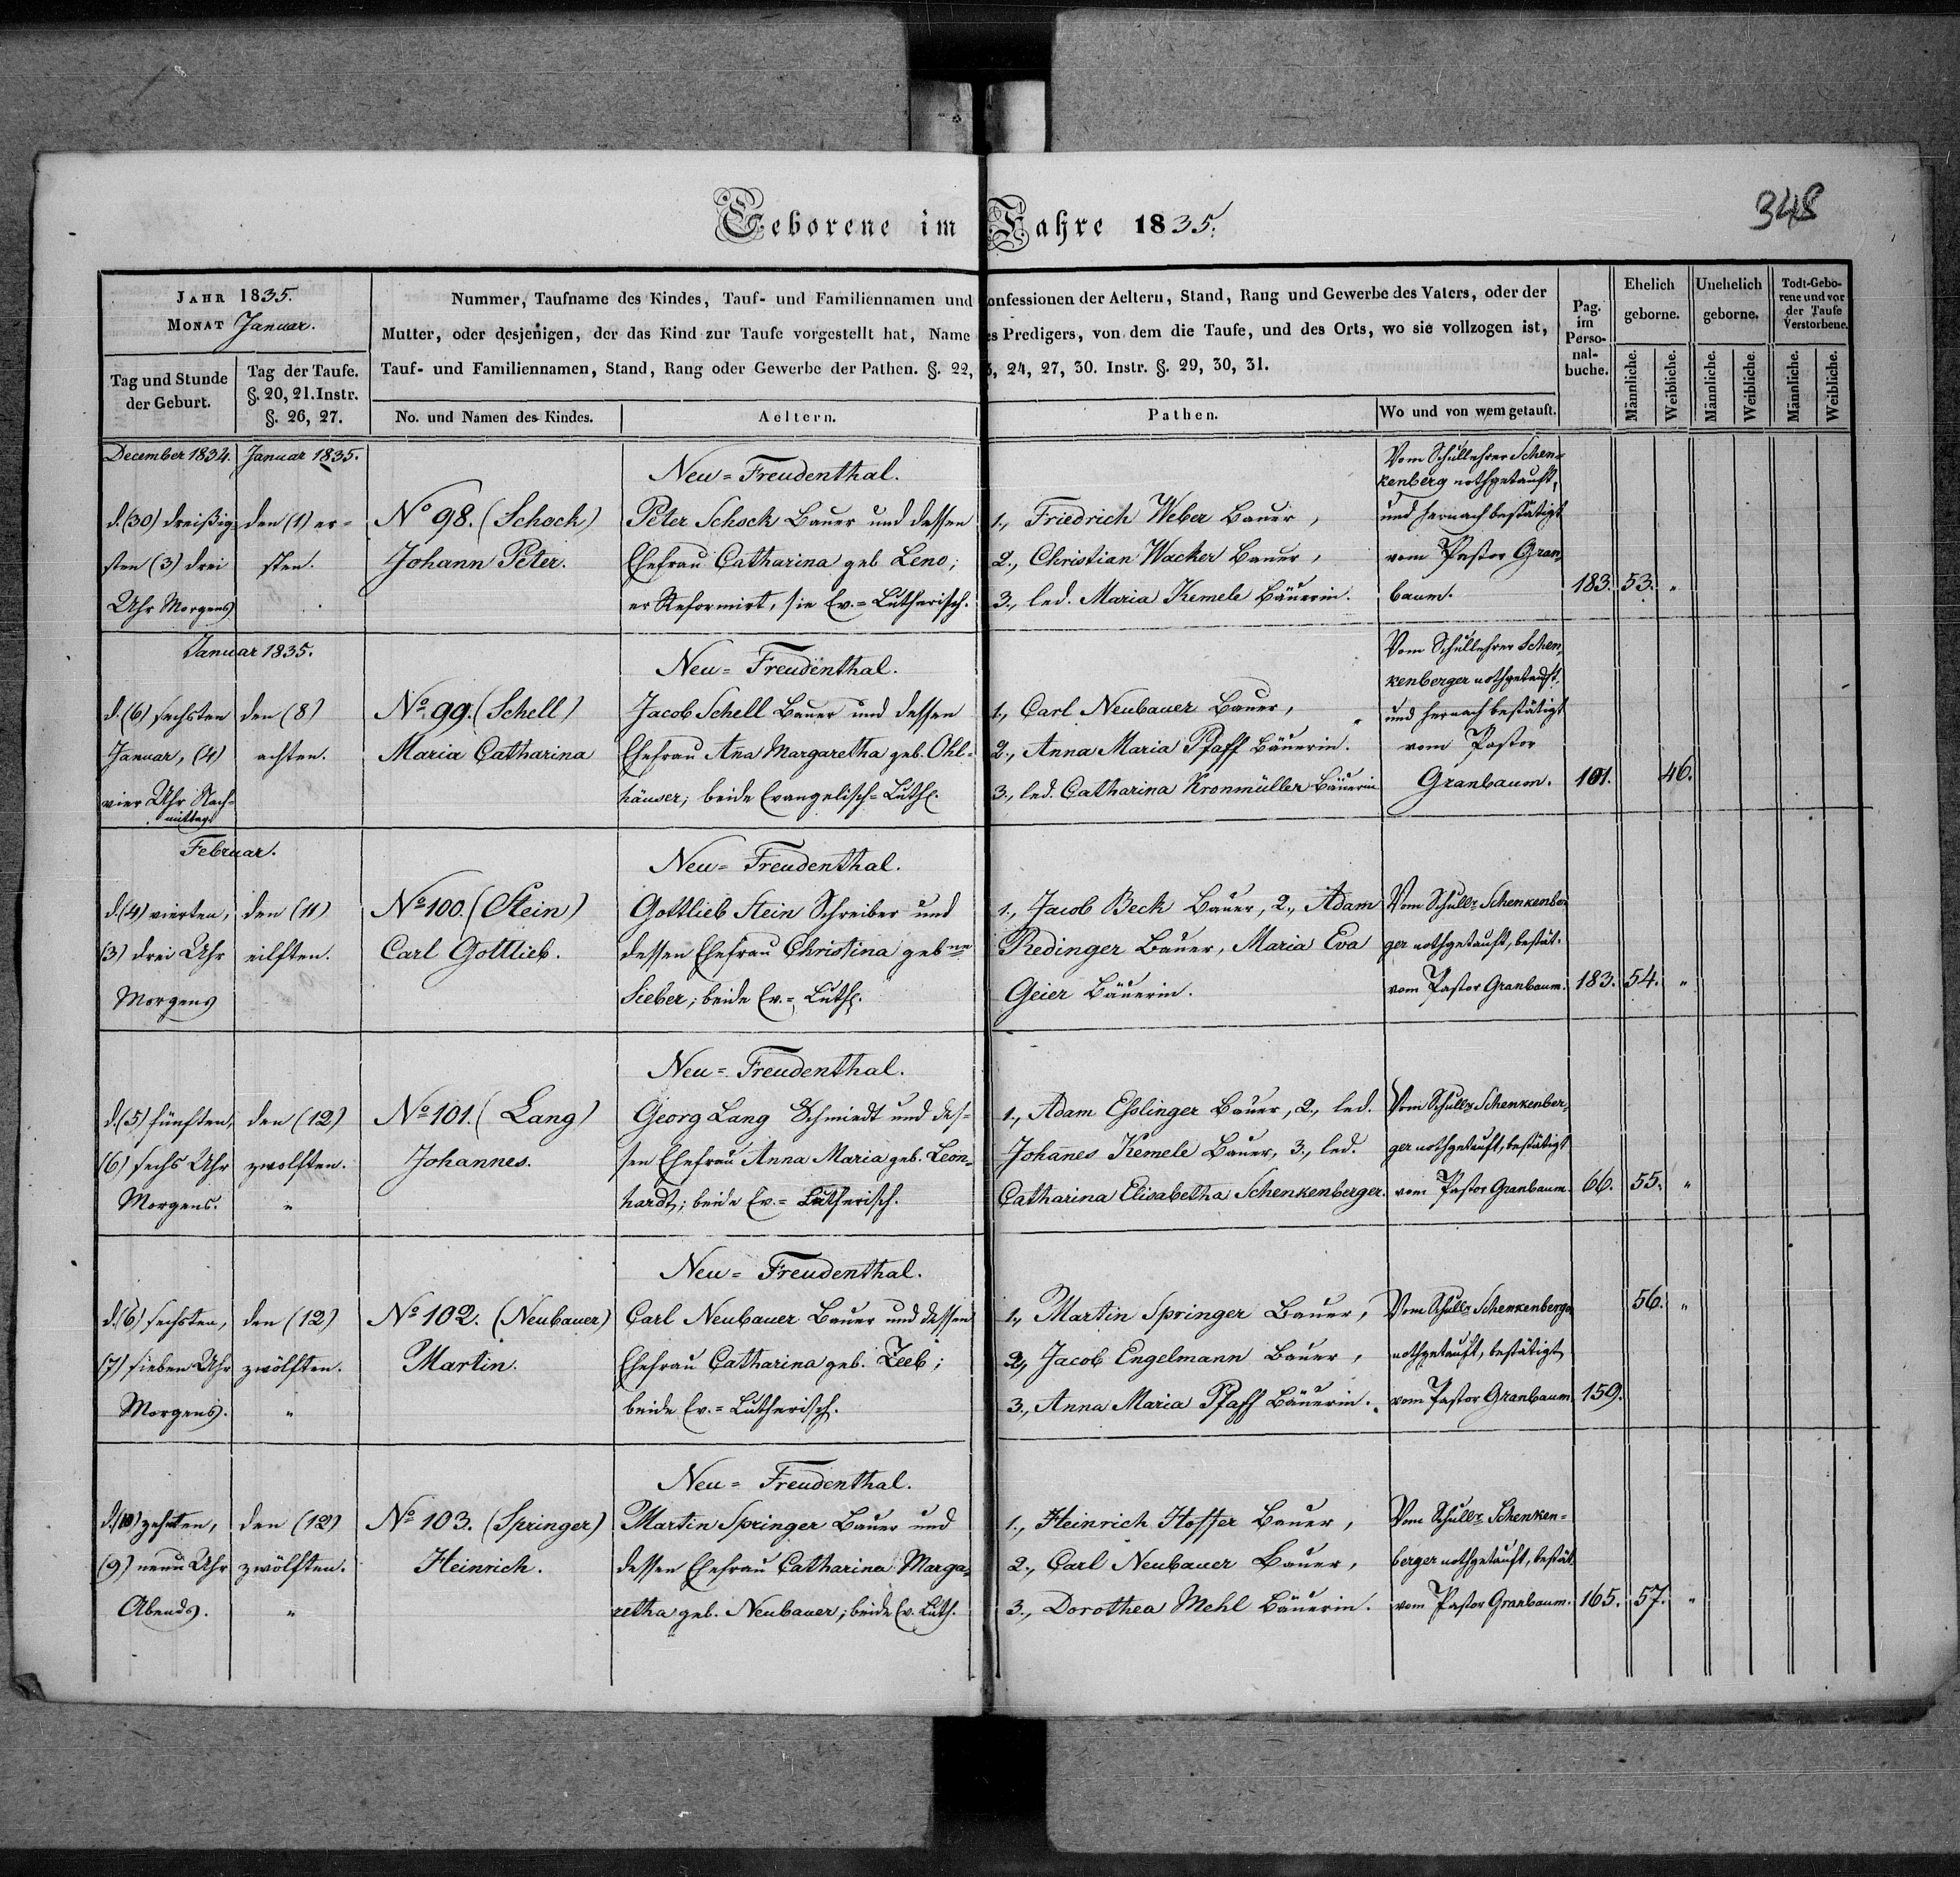 348
Geborene im Jahre 1835.
JAHR 1835.
MONAT Januar.
Tag und Stunde
der Geburt.
Tag der Taufe.
§. 20, 21. Instr.
§. 26, 27.
Nummer, Taufname des Kindes, Tauf- und Familiennamen und Confessionen der Aeltern, Stand, Rang und Gewerbe des Vaters, oder der
Mutter, oder desjenigen, der das Kind zur Taufe vorgestellt hat, Name des Predigers, von dem die Taufe, und des Orts, wo sie vollzogen ist,
Tauf- und Familiennamen, Stand, Rang oder Gewerbe der Pathen. §. 22, 23, 24, 27, 30. Instr. §. 29, 30, 31.
No. und Namen des Kindes.
Aeltern.
Pathen.
Wo und von wem getauft.
Pag.
im
Perso-
nal-
buche.
Ehelich
geborne.
Unehelich
geborne.
Todt-Gebo-
rene und vor
der Taufe
Verstorbene.
Männliche.
Weibliche.
Männliche.
Weibliche.
Männliche.
Weibliche.
December 1834.
d. (30) dreißig-
sten (3) drei
Uhr Morgens
Januar 1835.
den (1) er-
sten.
No 98. (Schock)
Johann Peter.
Neu-Freudenthal.
Peter Schock Bauer und dessen
Ehefrau Catharina geb Leno;
er Reformirt, sie Ev.-Lutherisch.
1., Friedrich Weber Bauer,
2., Christian Wacker Bauer,
3., led. Maria Kemele Bäuerin.
Vom Schullehrer Schen-
kenberg nothgetauft,
und hernach bestätigt
vom Pastor Gran-
baum.
183.
53.
"
Januar 1835.
d. (6) sechsten
Januar, (4)
vier Uhr Nach-
mittag
den (8)
achten.
No 99. (Schell)
Maria Catharina
Neu-Freudenthal.
Jacob Schell Bauer und dessen
Ehefrau Anna Margaretha geb. Ohl-
häuser; beide Evangelisch-Luth.
1., Carl Neubauer Bauer,
2., Anna Maria Pfaff Bäuerin.
3., led. Catharina Kronmüller Bäuerin
Vom Schullehrer Schen-
kenberger nothgetauft
und hernach bestätigt
vom Pastor
Granbaum.
101.
46.
Februar.
d. (4) vierten,
(3) drei Uhr
Morgens
den (11)
eilften.
No 100. (Stein)
Carl Gottlieb.
Neu-Freudenthal.
Gottlieb Stein Schreiber und
dessen Ehefrau Christina gebne
Sieber; beide Ev.-Luth.
1., Jacob Beck Bauer, 2., Adam
Redinger Bauer, Maria Eva
Geier Bäuerin.
Vom Schullr Schenkenber-
ger nothgetauft, bestät.
vom Pastor Granbaum.
183.
54.
"
d. (5) fünften,
(6) sechs Uhr
Morgens.
den (12)
zwolften.
"
No 101. (Lang)
Johannes.
Neu-Freudenthal.
Georg Lang Schmiedt und des-
sen Ehefrau Anna Maria geb. Leon-
hardt; beide Ev.-Lutherisch.
1., Adam Esslinger Bauer, 2., led.
Johanes Kemele Bauer, 3., led.
Catharina Elisabetha Schenkenberger.
Vom Schullr Schenkenber-
ger nothgetauft, bestätigt
vom Pastor Granbaum.
66.
55.
"
d. (6) sechsten,
(7) sieben Uhr
Morgens.
den (12)
zwölften.
"
No 102. (Neubauer)
Martin.
Neu-Freudenthal.
Carl Neubauer Bauer und dessen
Ehefrau Catharina geb. Zeeb;
beide Ev.-Lutherisch.
1., Martin Springer Bauer,
2., Jacob Engelmann Bauer,
3., Anna Maria Pfaff Bäuerin.
Vom Schullr Schenkenberger
nothgetauft, bestätigt
vom Pastor Granbaum.
159.
56.
"
d. (10) zehnten,
(9) neun Uhr
Abends.
den (12)
zwölften.
"
No 103. (Springer)
Heinrich.
Neu-Freudenthal.
Martin Springer Bauer und
dessen Ehefrau Catharina Marga-
retha geb. Neubauer; beide Ev. Luth.
1., Heinrich Hoffer Bauer,
2., Carl Neubauer Bauer,
3., Dorothea Mehl Bäuerin.
Vom Schullr Schenken-
berger nothgetauft, bestät.
vom Pastor Granbaum.
165.
57.
"